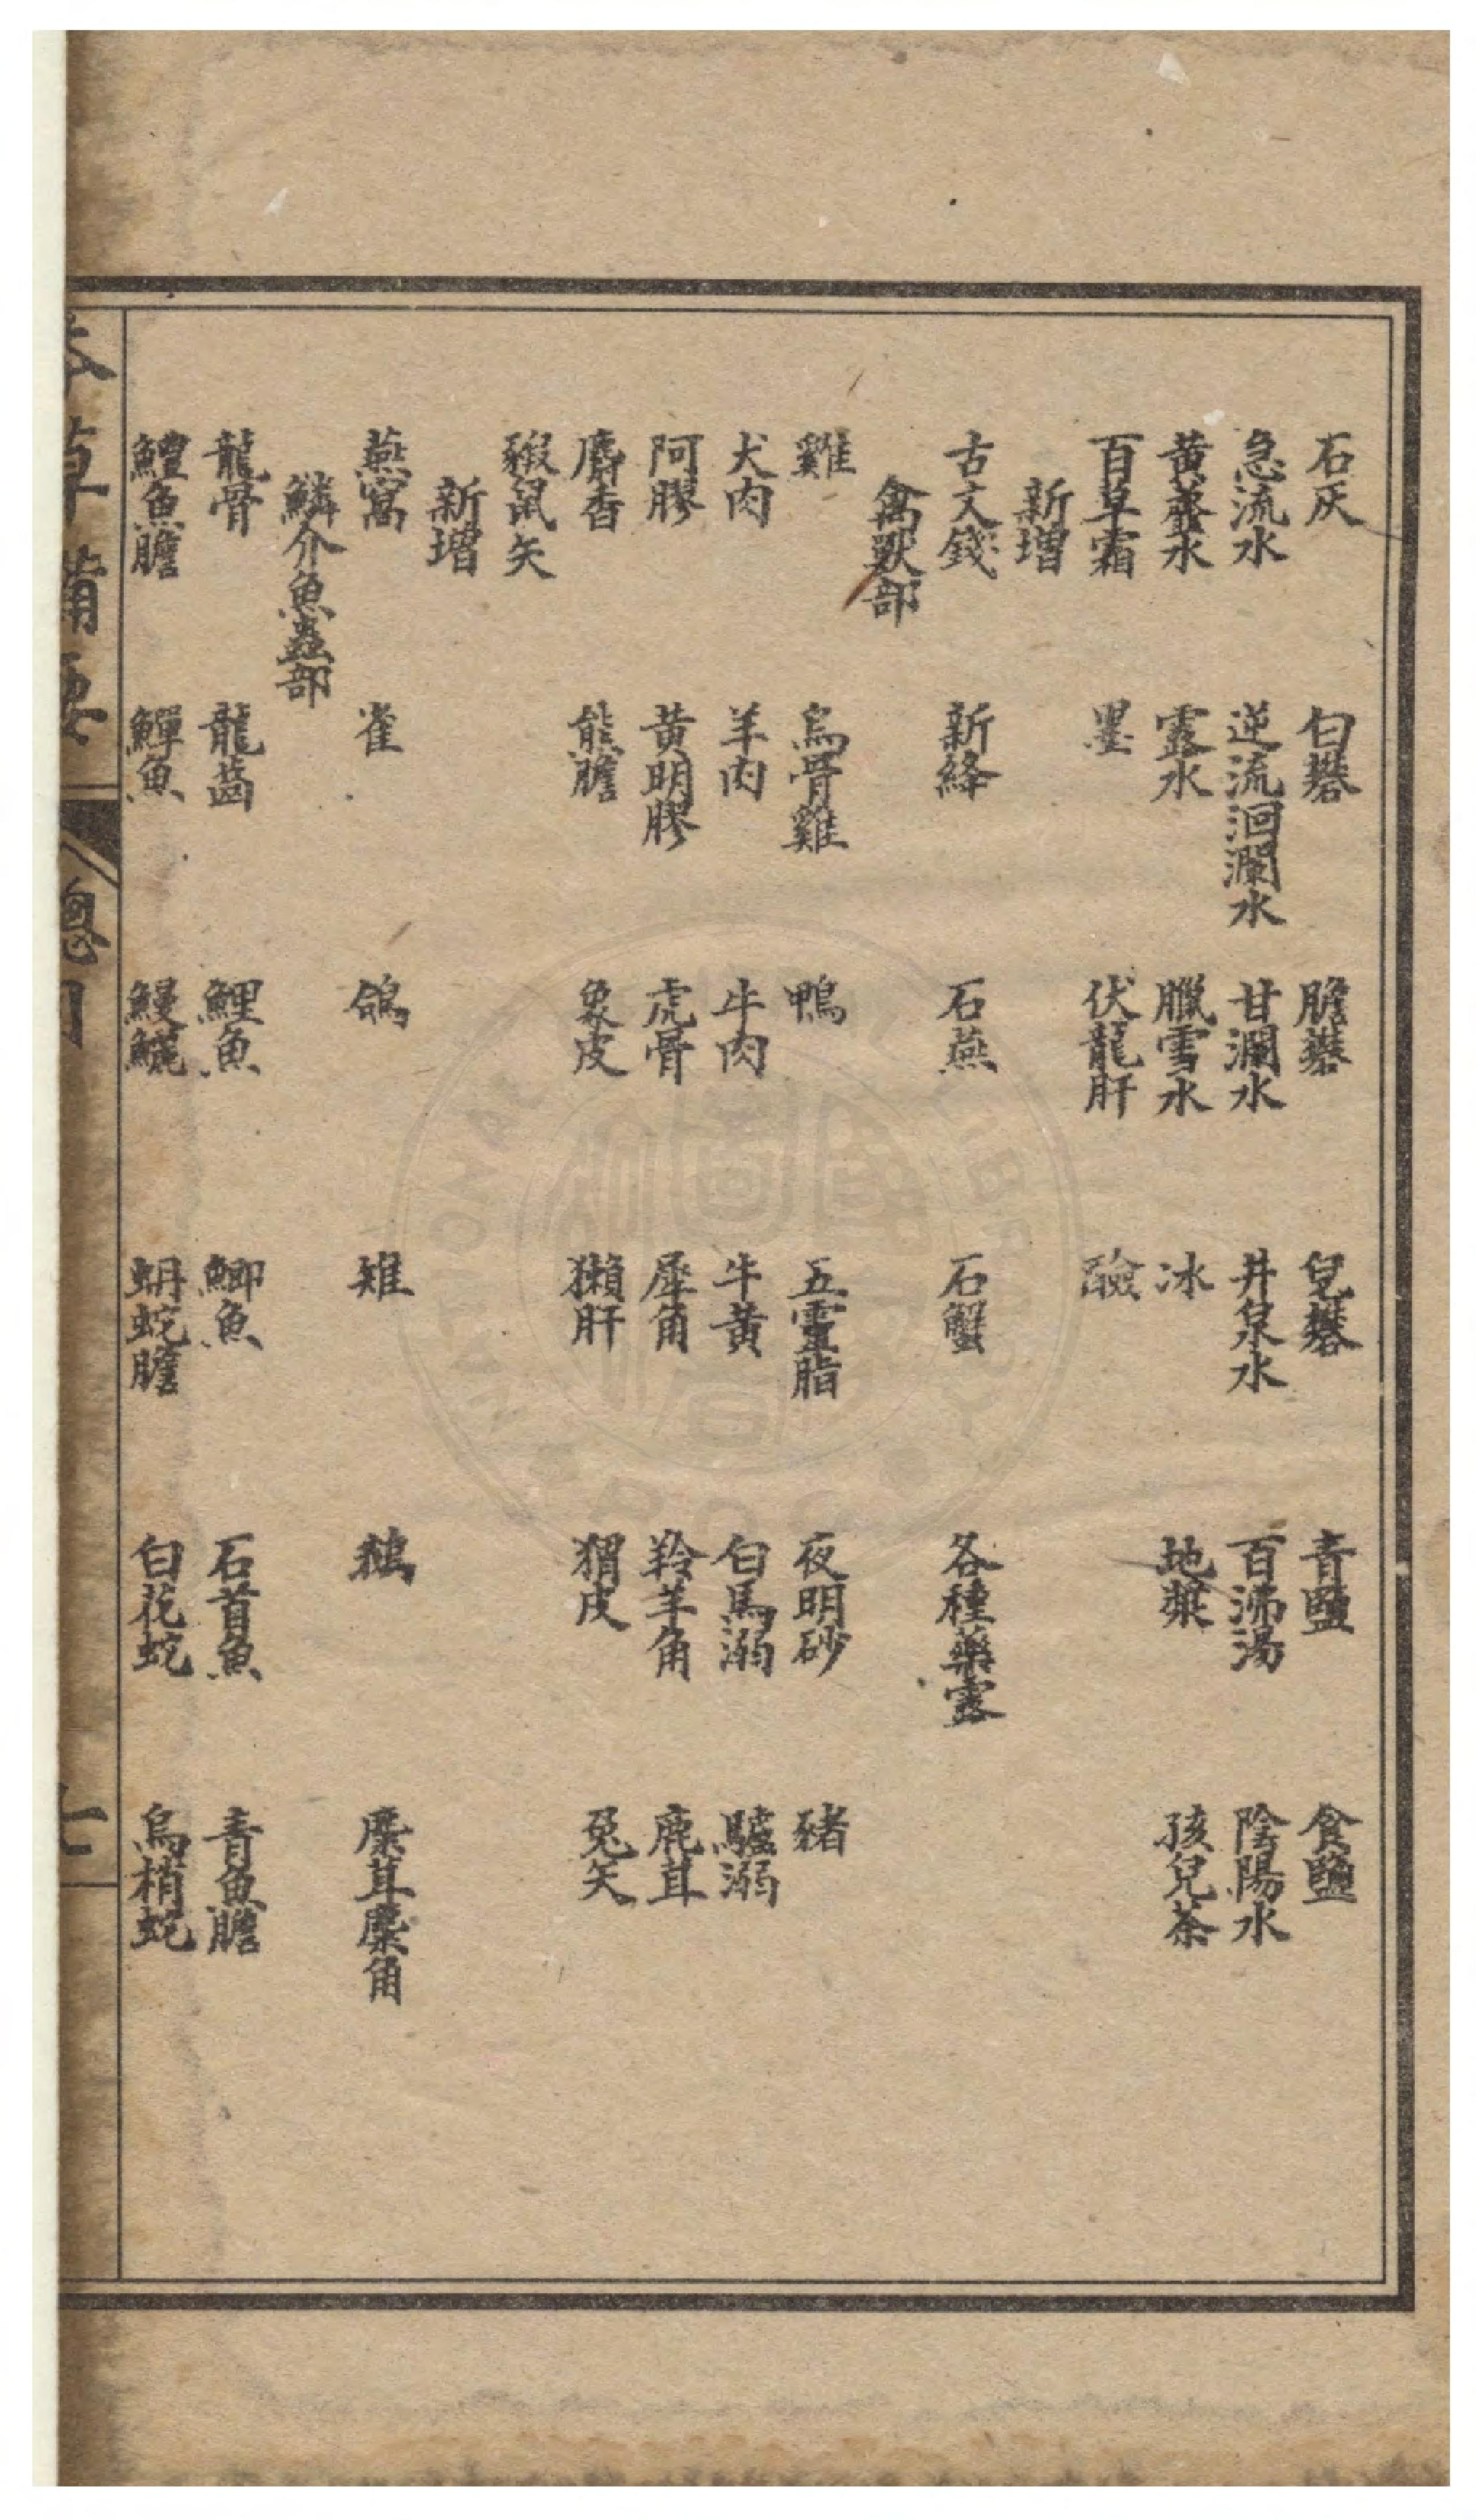 石灰 白礬 膽礬 皂礬 青鹽 食鹽
急流水 逆流洄瀾水 甘瀾水 井泉水 百沸湯 陰陽水
黃虀水 露水 臘雪水 冰 地漿 孩兒茶
百草霜 墨 伏龍肝 鹼
新增
古文錢 新絳 石燕 石蟹 各種藥露
禽獸部
雞 烏骨雞 鴨 五靈脂 夜明砂 豬
犬肉 羊肉 牛肉 牛黃 白馬溺 驢溺
阿膠 黃明膠 虎骨 犀角 羚羊角 鹿茸
麝香 熊膽 象皮 獺肝 猬皮 兔矢
豭鼠矢
新增
燕窩 雀 鴿 雉 鵝 麋茸麋角
鱗介魚蟲部
龍骨 龍齒 鯉魚 鯽魚 石首魚 青魚膽
鱧魚膽 鱓魚 鰻鱺 蚺蛇膽 白花蛇 烏梢蛇
本草備要 總目 七